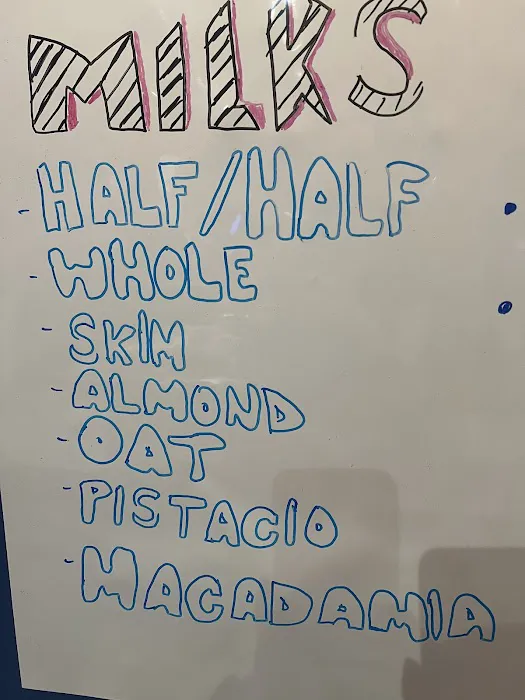 MILKS
- HALF/HALF
- WHOLE
- SKIM
- ALMOND
- OAT
- PISTACIO
- MACADAMIA